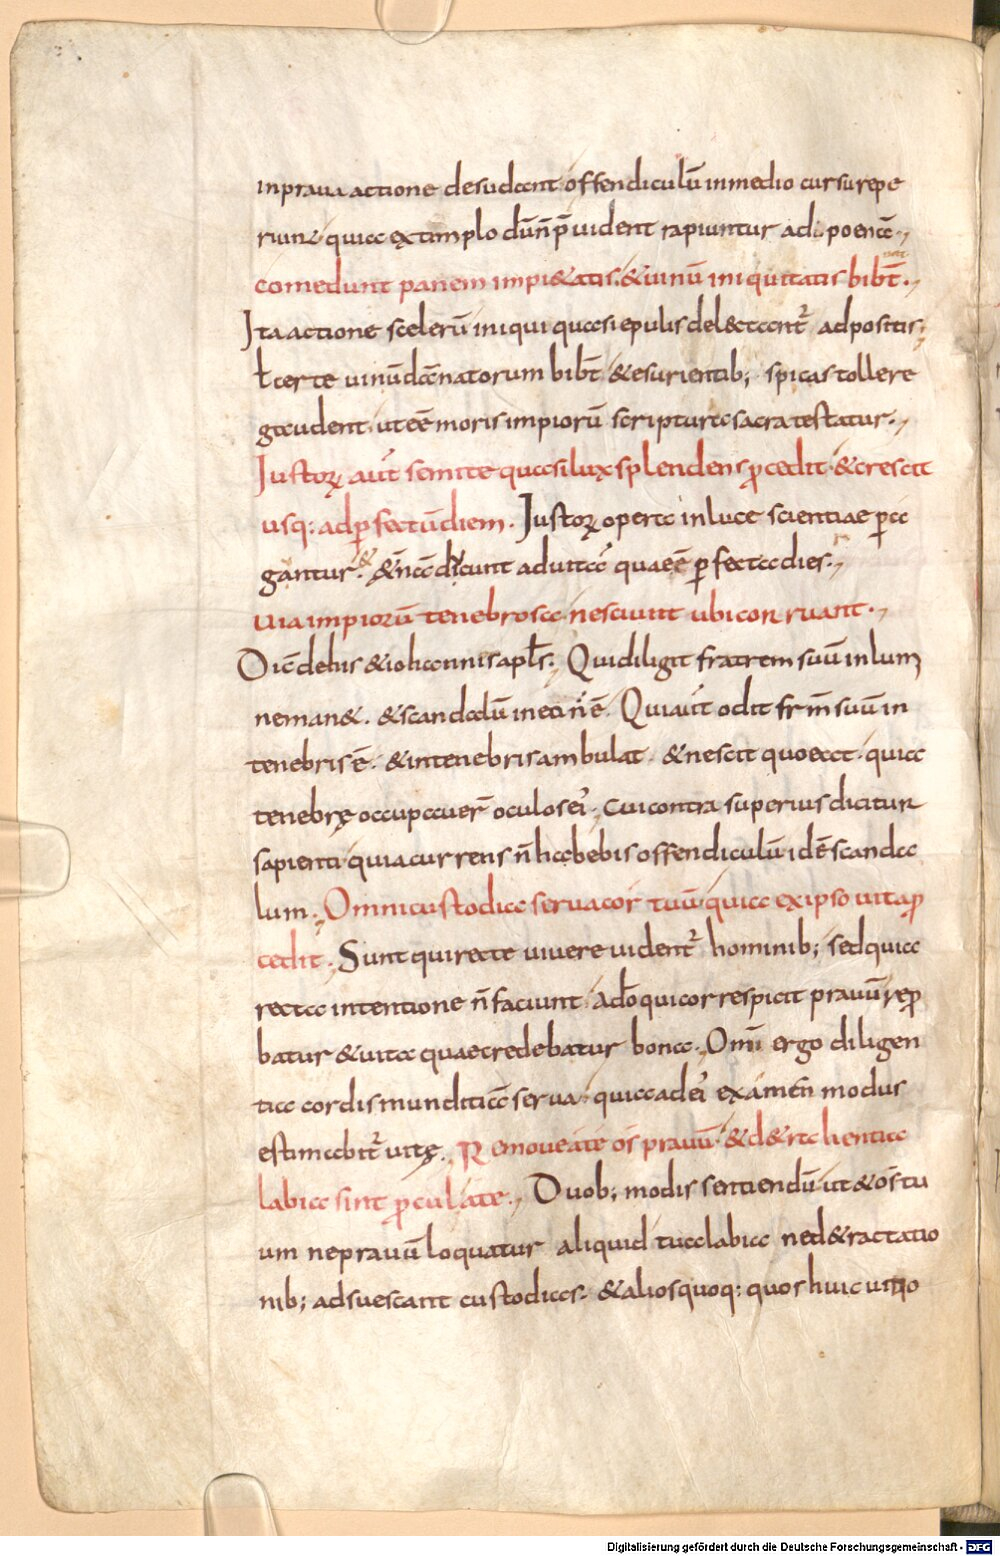 inpraua actione desudant offendiculū inmedio cursu repe
riunt quia extimplo dū n̄ p̄uident rapiuntur ad poenā.,
comedunt panem impi&atis. & uinū iniquitatis bibt̄.,
Ita actione scelerū iniqui quasi epulis del&tant᷑ adpositis;
ł certe uinū dānatorum bibt̄ & esurientib; spicas tollere
gaudent. ut eē moris impiorū scriptura sacra testatur.,
Iustoꝝ aut̄ semita quasi lux splendens ꝓcedit & crescit
usq: ad ꝑfectū diem. Iustoꝝ opera inluce scientiae ꝑa
gantur. & n̄cā dicunt ad uitā quae ē ꝑfecta dies.,
uia impiorū tenebrosa nesciunt ubi corruant.,
Dic̄ de his & iohannis apłs. Qui diligit fratrem suū inlum
ne man&. & scandalū in eo n̄ ē. Qui aut̄ odit frm̄ suū in
tenebris ē. & intenebris ambulat. & nescit quo eat. quia
tenebrę occupauer̄ oculos ei᷒. Cui contra superius dicitur
sapienti quia currens n̄ habebis offendiculū idē scanda
lum., Omni custodia serua cor tuū quia ex ipso uita ꝓ
cedit. Sunt qui recte uiuere uident᷑ hominib; sed quia
recta intentione n̄ faciunt. a dō qui cor respicit prauū repro
batur & uita quae credebatur bona., Omi ergo diligen
tia cordis munditiā serua. quia ad ei᷒ examen modus
estimabit᷑ uitę., Remoue a te os prauū & d&rahentia
labia sint ꝓcul a te., Duob; modis sentiendū ut & os tu
um ne prauū loquatur aliquid tua labia ne d&ractatio
nib; adsuescant custodias. & alios quoq: quos huic uitio
Digitalisierung gefördert durch die Deutsche Forschungsgemeinschaft - DFG